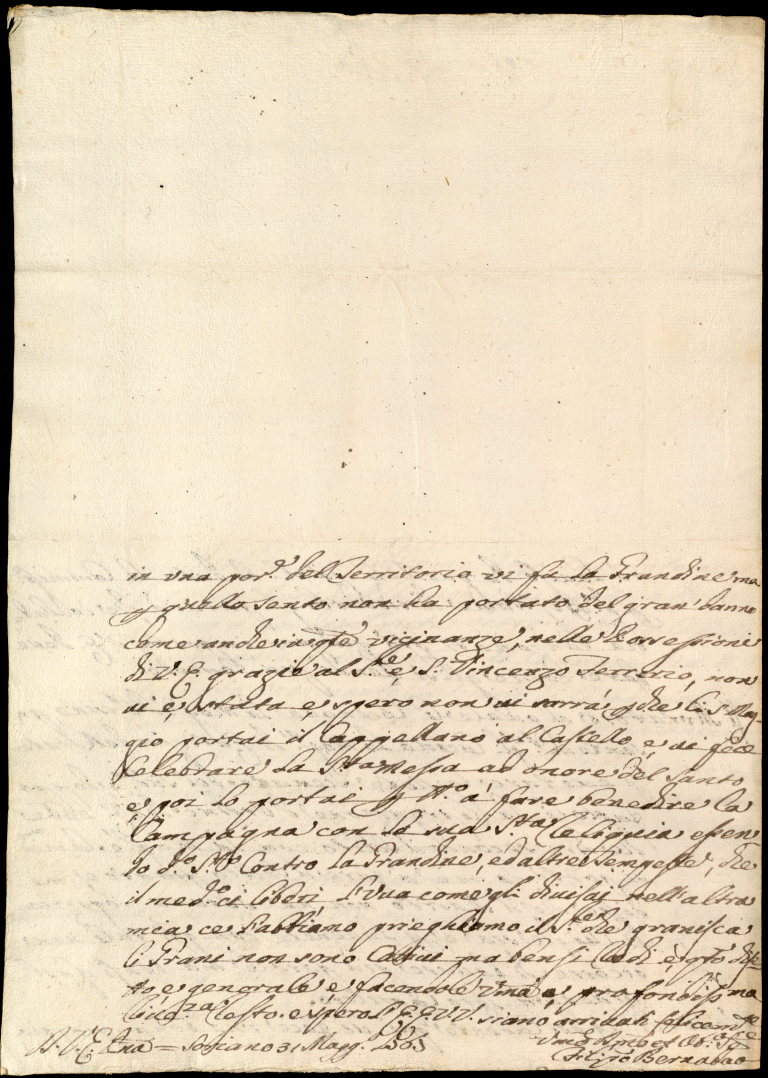 in una por.e del Territorio vi fu la Grandine, ma
p quello sento non ha portato del gran danno
come anche in qte vicinanze, nelle Possessioni
di V. E. grazie al S.re e S. Vincenzo Ferrerio, non
vi é stata é spero non vi sarrá p che li 5 Mag-
gio portai il Cappellano al Castello é vi fece
Celebrare la S.ta Messa ad onore del Santo
e poi lo portai p á fare benedire la
Campagna con la sua S.ta Reliquia essen
do d.o S.to Contro la Grandine, ed altre Tempeste, che
il med.o ci liberi l'Uva come gli divisai nell'altra
mia ce l'abbiamo prieghiamo il S.re che granisca
li Grani non sono Cattivi ma bensi
e generale e facendole Um.a e profondiss.ma
Resto. e spero l'E. E. V.V. siano arrivati felicem.te
D. V. E. Soriano 31 Magg.
Filippo Bernabao